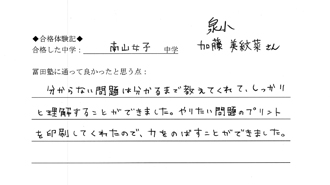 泉小
◆合格体験記◆
加藤 美紋菜さん
合格した中学：南山女子 中学
冨田塾に通って良かったと思う点：
分からない問題は分かるまで教えてくれて、しっかり
と理解することができました。やりたい問題のプリント
を印刷してくれたので、力をのばすことができました。